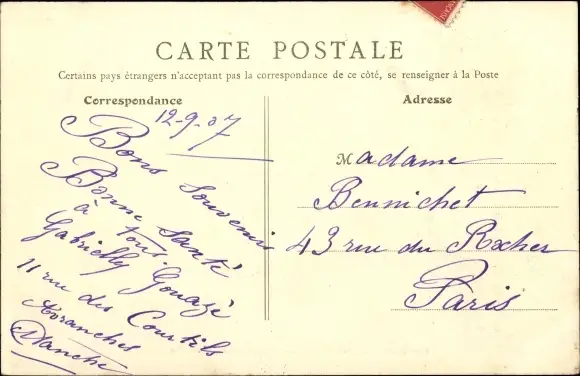 CARTE POSTALE
Certains pays étrangers n'acceptant pas la correspondance de ce côté, se renseigner à la Poste
Correspondance
12-9-07
Bons Souvenirs
Bonne Santé
à tous.
Gabrielly Gouazé
11 rue des Courtils
Avranches
Manche
Adresse
Madame
Bennichet
43 rue du Rocher
Paris